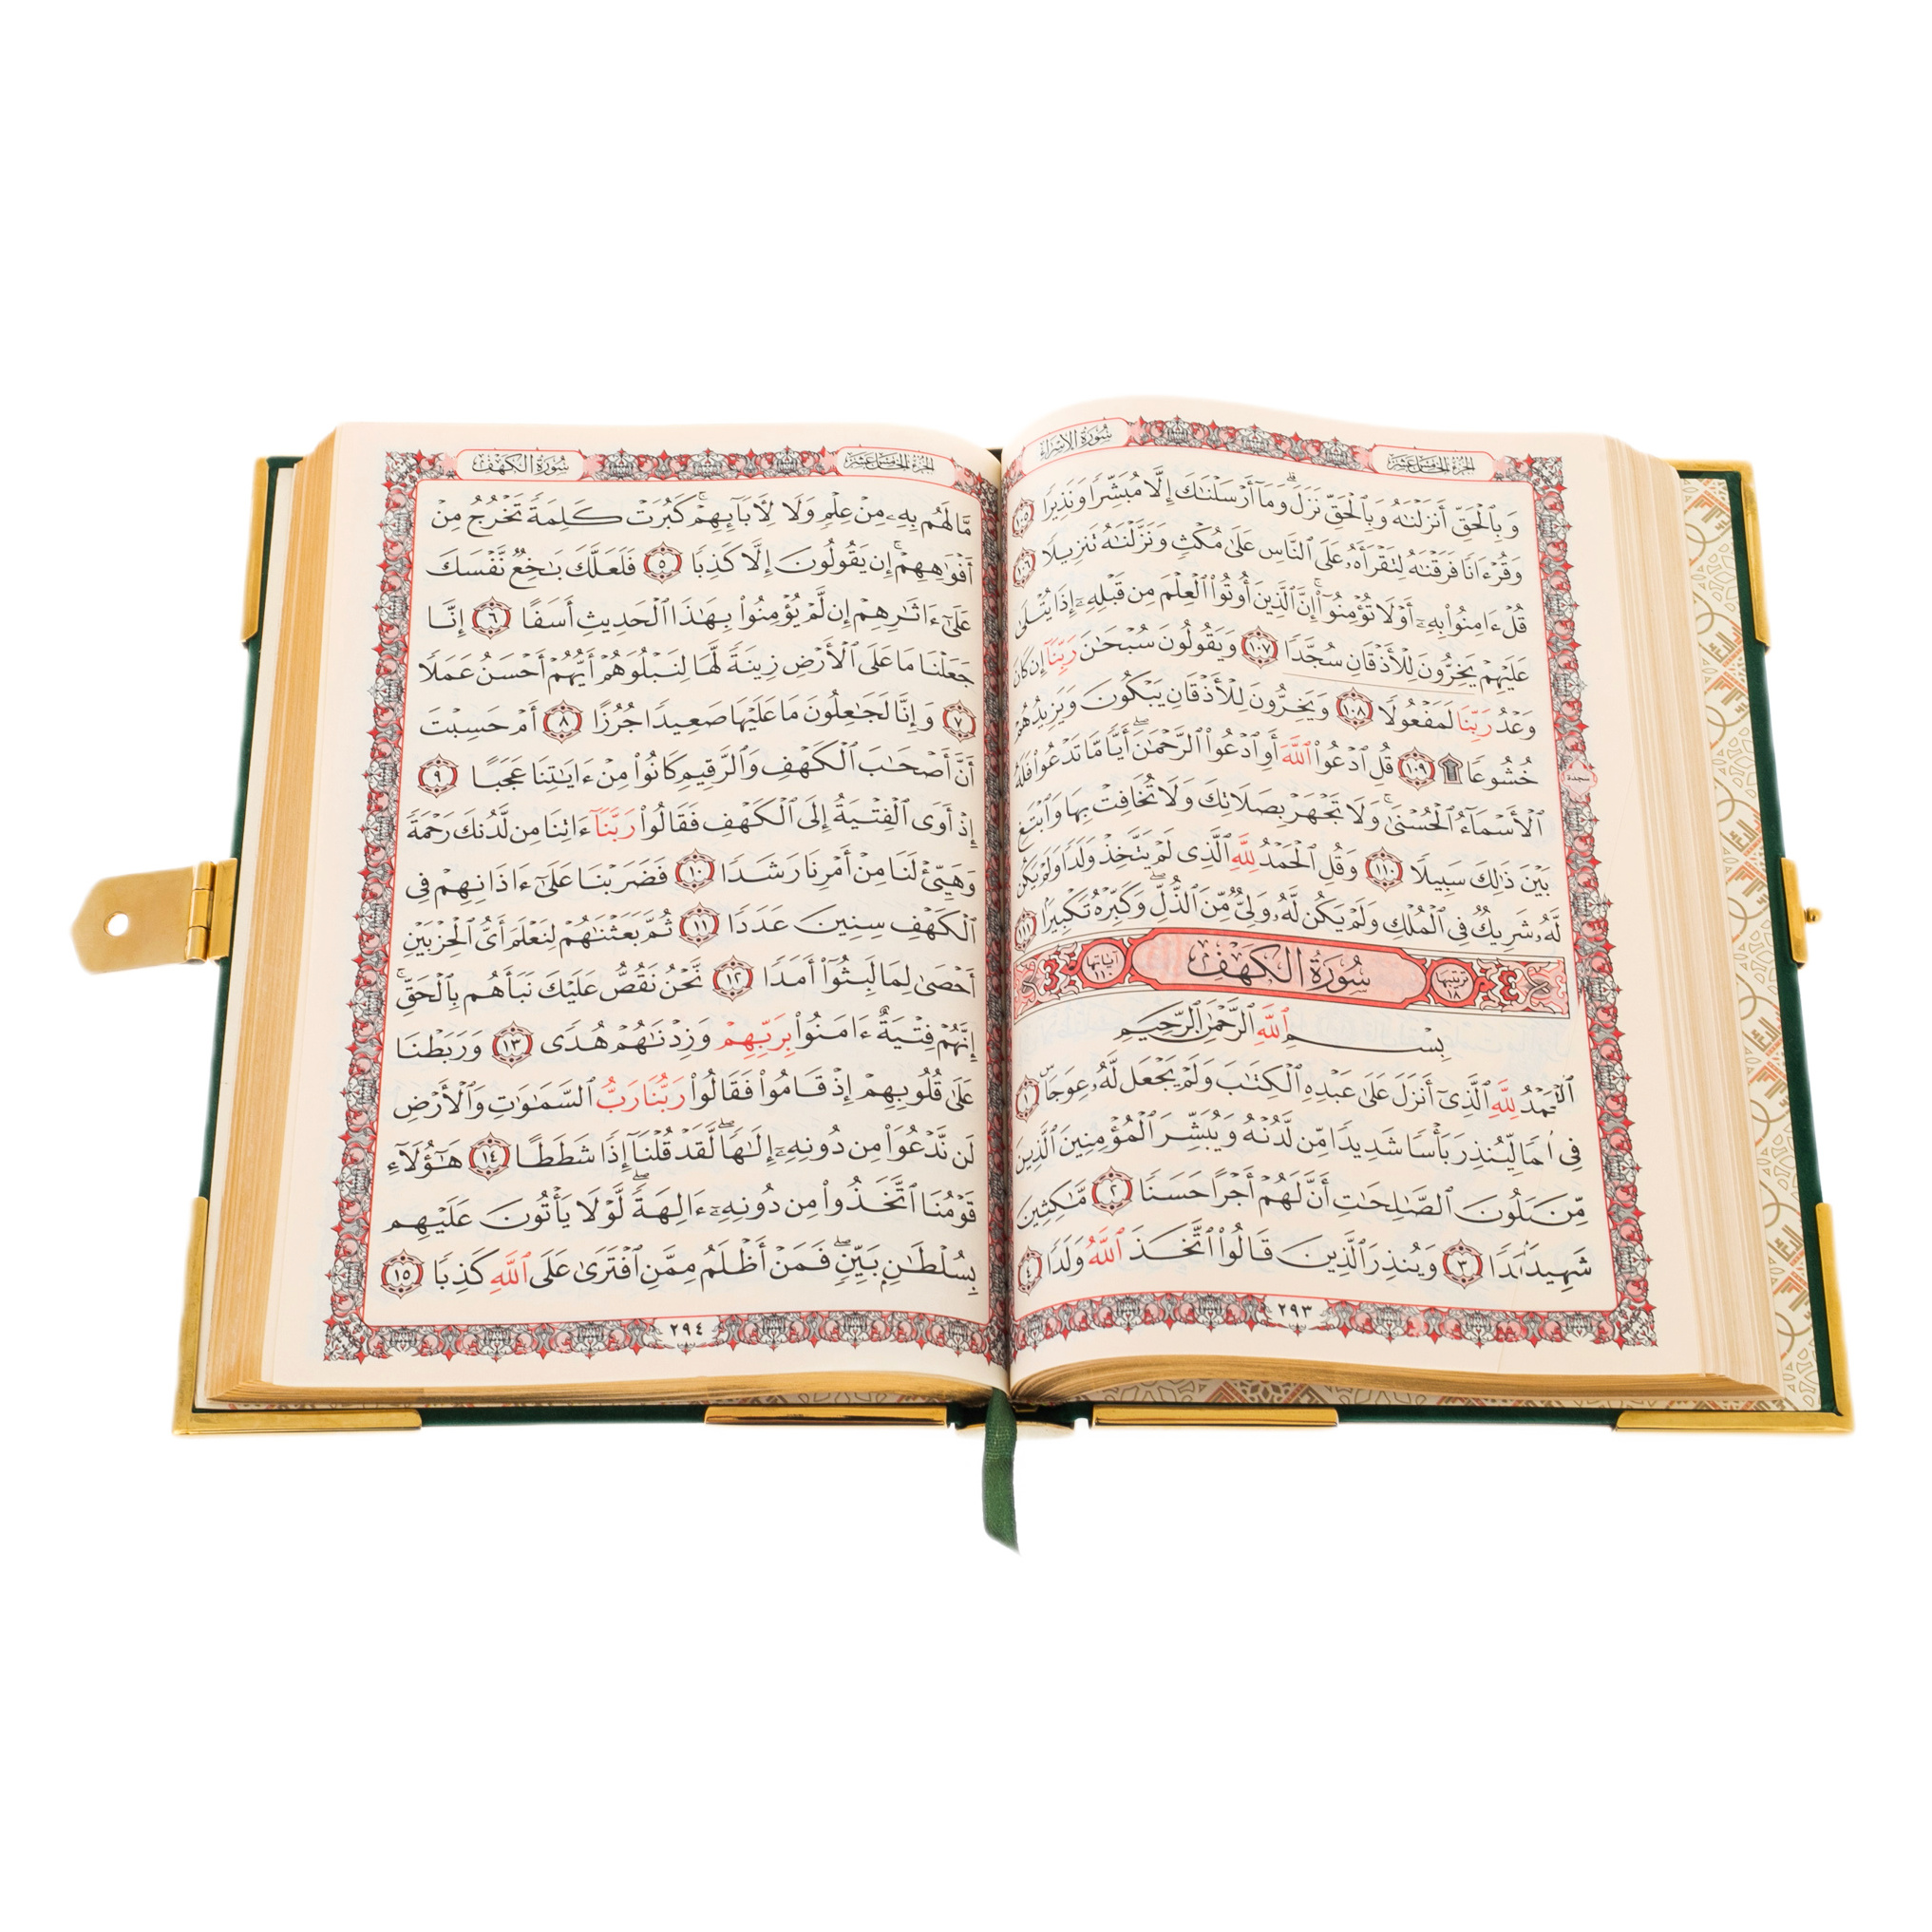 سُورَةُ الإِسْرَاء
الجُزْءُ الخَامِسَ عَشَرَ
وَبِٱلۡحَقِّ أَنزَلۡنَٰهُ وَبِٱلۡحَقِّ نَزَلَۗ وَمَآ أَرۡسَلۡنَٰكَ إِلَّا مُبَشِّرٗا وَنَذِيرٗا ١٠٥
وَقُرۡءَانٗا فَرَقۡنَٰهُ لِتَقۡرَأَهُۥ عَلَى ٱلنَّاسِ عَلَىٰ مُكۡثٖ وَنَزَّلۡنَٰهُ تَنزِيلٗا ١٠٦
قُلۡ ءَامِنُواْ بِهِۦٓ أَوۡ لَا تُؤۡمِنُوٓاْۚ إِنَّ ٱلَّذِينَ أُوتُواْ ٱلۡعِلۡمَ مِن قَبۡلِهِۦٓ إِذَا يُتۡلَىٰ
عَلَيۡهِمۡ يَخِرُّونَ لِلۡأَذۡقَانِ سُجَّدٗا ١٠٧ وَيَقُولُونَ سُبۡحَٰنَ رَبِّنَآ إِن كَانَ
وَعۡدُ رَبِّنَا لَمَفۡعُولٗا ١٠٨ وَيَخِرُّونَ لِلۡأَذۡقَانِ يَبۡكُونَ وَيَزِيدُهُمۡ
خُشُوعٗا ۩ ١٠٩ قُلِ ٱدۡعُواْ ٱللَّهَ أَوِ ٱدۡعُواْ ٱلرَّحۡمَٰنَۖ أَيّٗا مَّا تَدۡعُواْ فَلَهُ
سجدة
ٱلۡأَسۡمَآءُ ٱلۡحُسۡنَىٰۚ وَلَا تَجۡهَرۡ بِصَلَاتِكَ وَلَا تُخَافِتۡ بِهَا وَٱبۡتَغِ
بَيۡنَ ذَٰلِكَ سَبِيلٗا ١١٠ وَقُلِ ٱلۡحَمۡدُ لِلَّهِ ٱلَّذِي لَمۡ يَتَّخِذۡ وَلَدٗا وَلَمۡ يَكُن
لَّهُۥ شَرِيكٞ فِي ٱلۡمُلۡكِ وَلَمۡ يَكُن لَّهُۥ وَلِيّٞ مِّنَ ٱلذُّلِّۖ وَكَبِّرۡهُ تَكۡبِيرَۢا ١١١
ترتيبها ١٨ سُورَةُ الكَهْفِ آياتها ١١٠
بِسۡمِ ٱللَّهِ ٱلرَّحۡمَٰنِ ٱلرَّحِيمِ
لِلَّهِ ٱلَّذِيٓ أَنزَلَ عَلَىٰ عَبۡدِهِ ٱلۡكِتَٰبَ وَلَمۡ يَجۡعَل لَّهُۥ عِوَجَاۜ ١
لِّيُنذِرَ بَأۡسٗا شَدِيدٗا مِّن لَّدُنۡهُ وَيُبَشِّرَ ٱلۡمُؤۡمِنِينَ ٱلَّذِينَ
ٱلصَّٰلِحَٰتِ أَنَّ لَهُمۡ أَجۡرًا حَسَنٗا ٢ مَّٰكِثِينَ
٣ وَيُنذِرَ ٱلَّذِينَ قَالُواْ ٱتَّخَذَ ٱللَّهُ وَلَدٗا ٤
٢٩٣
الجُزْءُ الخَامِسَ عَشَرَ
سُورَةُ الكَهْفِ
مَّا لَهُم بِهِۦ مِنۡ عِلۡمٖ وَلَا لِأٓبَآئِهِمۡۚ كَبُرَتۡ كَلِمَةٗ تَخۡرُجُ مِنۡ
أَفۡوَٰهِهِمۡۚ إِن يَقُولُونَ إِلَّا كَذِبٗا ٥ فَلَعَلَّكَ بَٰخِعٞ نَّفۡسَكَ
عَلَىٰٓ ءَاثَٰرِهِمۡ إِن لَّمۡ يُؤۡمِنُواْ بِهَٰذَا ٱلۡحَدِيثِ أَسَفًا ٦ إِنَّا
جَعَلۡنَا مَا عَلَى ٱلۡأَرۡضِ زِينَةٗ لَّهَا لِنَبۡلُوَهُمۡ أَيُّهُمۡ أَحۡسَنُ عَمَلٗا
٧ وَإِنَّا لَجَٰعِلُونَ مَا عَلَيۡهَا صَعِيدٗا جُرُزًا ٨ أَمۡ حَسِبۡتَ
أَنَّ أَصۡحَٰبَ ٱلۡكَهۡفِ وَٱلرَّقِيمِ كَانُواْ مِنۡ ءَايَٰتِنَا عَجَبًا ٩
إِذۡ أَوَى ٱلۡفِتۡيَةُ إِلَى ٱلۡكَهۡفِ فَقَالُواْ رَبَّنَآ ءَاتِنَا مِن لَّدُنكَ رَحۡمَةٗ
وَهَيِّئۡ لَنَا مِنۡ أَمۡرِنَا رَشَدٗا ١٠ فَضَرَبۡنَا عَلَىٰٓ ءَاذَانِهِمۡ فِي
ٱلۡكَهۡفِ سِنِينَ عَدَدٗا ١١ ثُمَّ بَعَثۡنَٰهُمۡ لِنَعۡلَمَ أَيُّ ٱلۡحِزۡبَيۡنِ
أَحۡصَىٰ لِمَا لَبِثُوٓاْ أَمَدٗا ١٢ نَّحۡنُ نَقُصُّ عَلَيۡكَ نَبَأَهُم بِٱلۡحَقِّۚ
إِنَّهُمۡ فِتۡيَةٌ ءَامَنُواْ بِرَبِّهِمۡ وَزِدۡنَٰهُمۡ هُدٗى ١٣ وَرَبَطۡنَا
عَلَىٰ قُلُوبِهِمۡ إِذۡ قَامُواْ فَقَالُواْ رَبُّنَا رَبُّ ٱلسَّمَٰوَٰتِ وَٱلۡأَرۡضِ
لَن نَّدۡعُوَاْ مِن دُونِهِۦٓ إِلَٰهٗاۖ لَّقَدۡ قُلۡنَآ إِذٗا شَطَطًا ١٤ هَٰٓؤُلَآءِ
قَوۡمُنَا ٱتَّخَذُواْ مِن دُونِهِۦٓ ءَالِهَةٗۖ لَّوۡلَا يَأۡتُونَ عَلَيۡهِم
بِسُلۡطَٰنِۭ بَيِّنٖۖ فَمَنۡ أَظۡلَمُ مِمَّنِ ٱفۡتَرَىٰ عَلَى ٱللَّهِ كَذِبٗا ١٥
٢٩٤